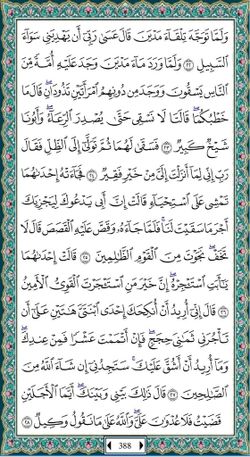 وَلَمَّا تَوَجَّهَ تِلْقَآءَ مَدْيَنَ قَالَ عَسَىٰ رَبِّىٓ أَن يَهْدِيَنِى سَوَآءَ
ٱلسَّبِيلِ ٢٢ وَلَمَّا وَرَدَ مَآءَ مَدْيَنَ وَجَدَ عَلَيْهِ أُمَّةً مِّنَ
ٱلنَّاسِ يَسْقُونَ وَوَجَدَ مِن دُونِهِمُ ٱمْرَأَتَيْنِ تَذُودَانِ ۖ قَالَ مَا
خَطْبُكُمَا ۖ قَالَتَا لَا نَسْقِى حَتَّىٰ يُصْدِرَ ٱلرِّعَآءُ ۖ وَأَبُونَا
شَيْخٌ كَبِيرٌ ٢٣ فَسَقَىٰ لَهُمَا ثُمَّ تَوَلَّىٰٓ إِلَى ٱلظِّلِّ فَقَالَ
رَبِّ إِنِّى لِمَآ أَنزَلْتَ إِلَىَّ مِنْ خَيْرٍ فَقِيرٌ ٢٤ فَجَآءَتْهُ إِحْدَىٰهُمَا
تَمْشِى عَلَى ٱسْتِحْيَآءٍ قَالَتْ إِنَّ أَبِى يَدْعُوكَ لِيَجْزِيَكَ
أَجْرَ مَا سَقَيْتَ لَنَا ۚ فَلَمَّا جَآءَهُۥ وَقَصَّ عَلَيْهِ ٱلْقَصَصَ قَالَ لَا
تَخَفْ ۖ نَجَوْتَ مِنَ ٱلْقَوْمِ ٱلظَّٰلِمِينَ ٢٥ قَالَتْ إِحْدَىٰهُمَا
يَٰٓأَبَتِ ٱسْتَـْٔجِرْهُ ۖ إِنَّ خَيْرَ مَنِ ٱسْتَـْٔجَرْتَ ٱلْقَوِىُّ ٱلْأَمِينُ
٢٦ قَالَ إِنِّىٓ أُرِيدُ أَنْ أُنكِحَكَ إِحْدَى ٱبْنَتَىَّ هَٰتَيْنِ عَلَىٰٓ أَن
تَأْجُرَنِى ثَمَٰنِىَ حِجَجٍ ۖ فَإِنْ أَتْمَمْتَ عَشْرًا فَمِنْ عِندِكَ ۖ
وَمَآ أُرِيدُ أَنْ أَشُقَّ عَلَيْكَ ۚ سَتَجِدُنِىٓ إِن شَآءَ ٱللَّهُ مِنَ
ٱلصَّٰلِحِينَ ٢٧ قَالَ ذَٰلِكَ بَيْنِى وَبَيْنَكَ ۖ أَيَّمَا ٱلْأَجَلَيْنِ
قَضَيْتُ فَلَا عُدْوَٰنَ عَلَىَّ ۖ وَٱللَّهُ عَلَىٰ مَا نَقُولُ وَكِيلٌ ٢٨
388